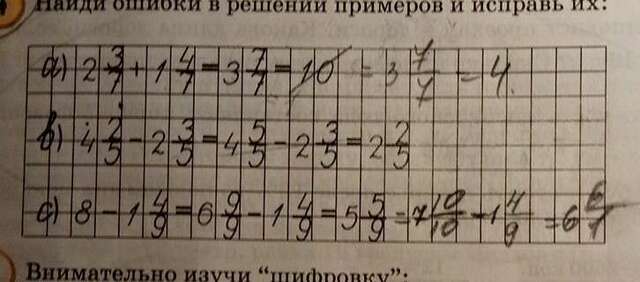 Найди ошибки в решении примеров и исправь их:
a) 2 3/7 + 1 4/7 = 3 7/7 = 10 = 3 7/7 = 4
b) 4 2/5 - 2 3/5 = 4 5/5 - 2 3/5 = 2 2/5
c) 8 - 1 4/9 = 6 9/9 - 1 4/9 = 5 5/9 = 7 10/10 - 1 4/9 = 6 6/1
Внимательно изучи "шифровку":